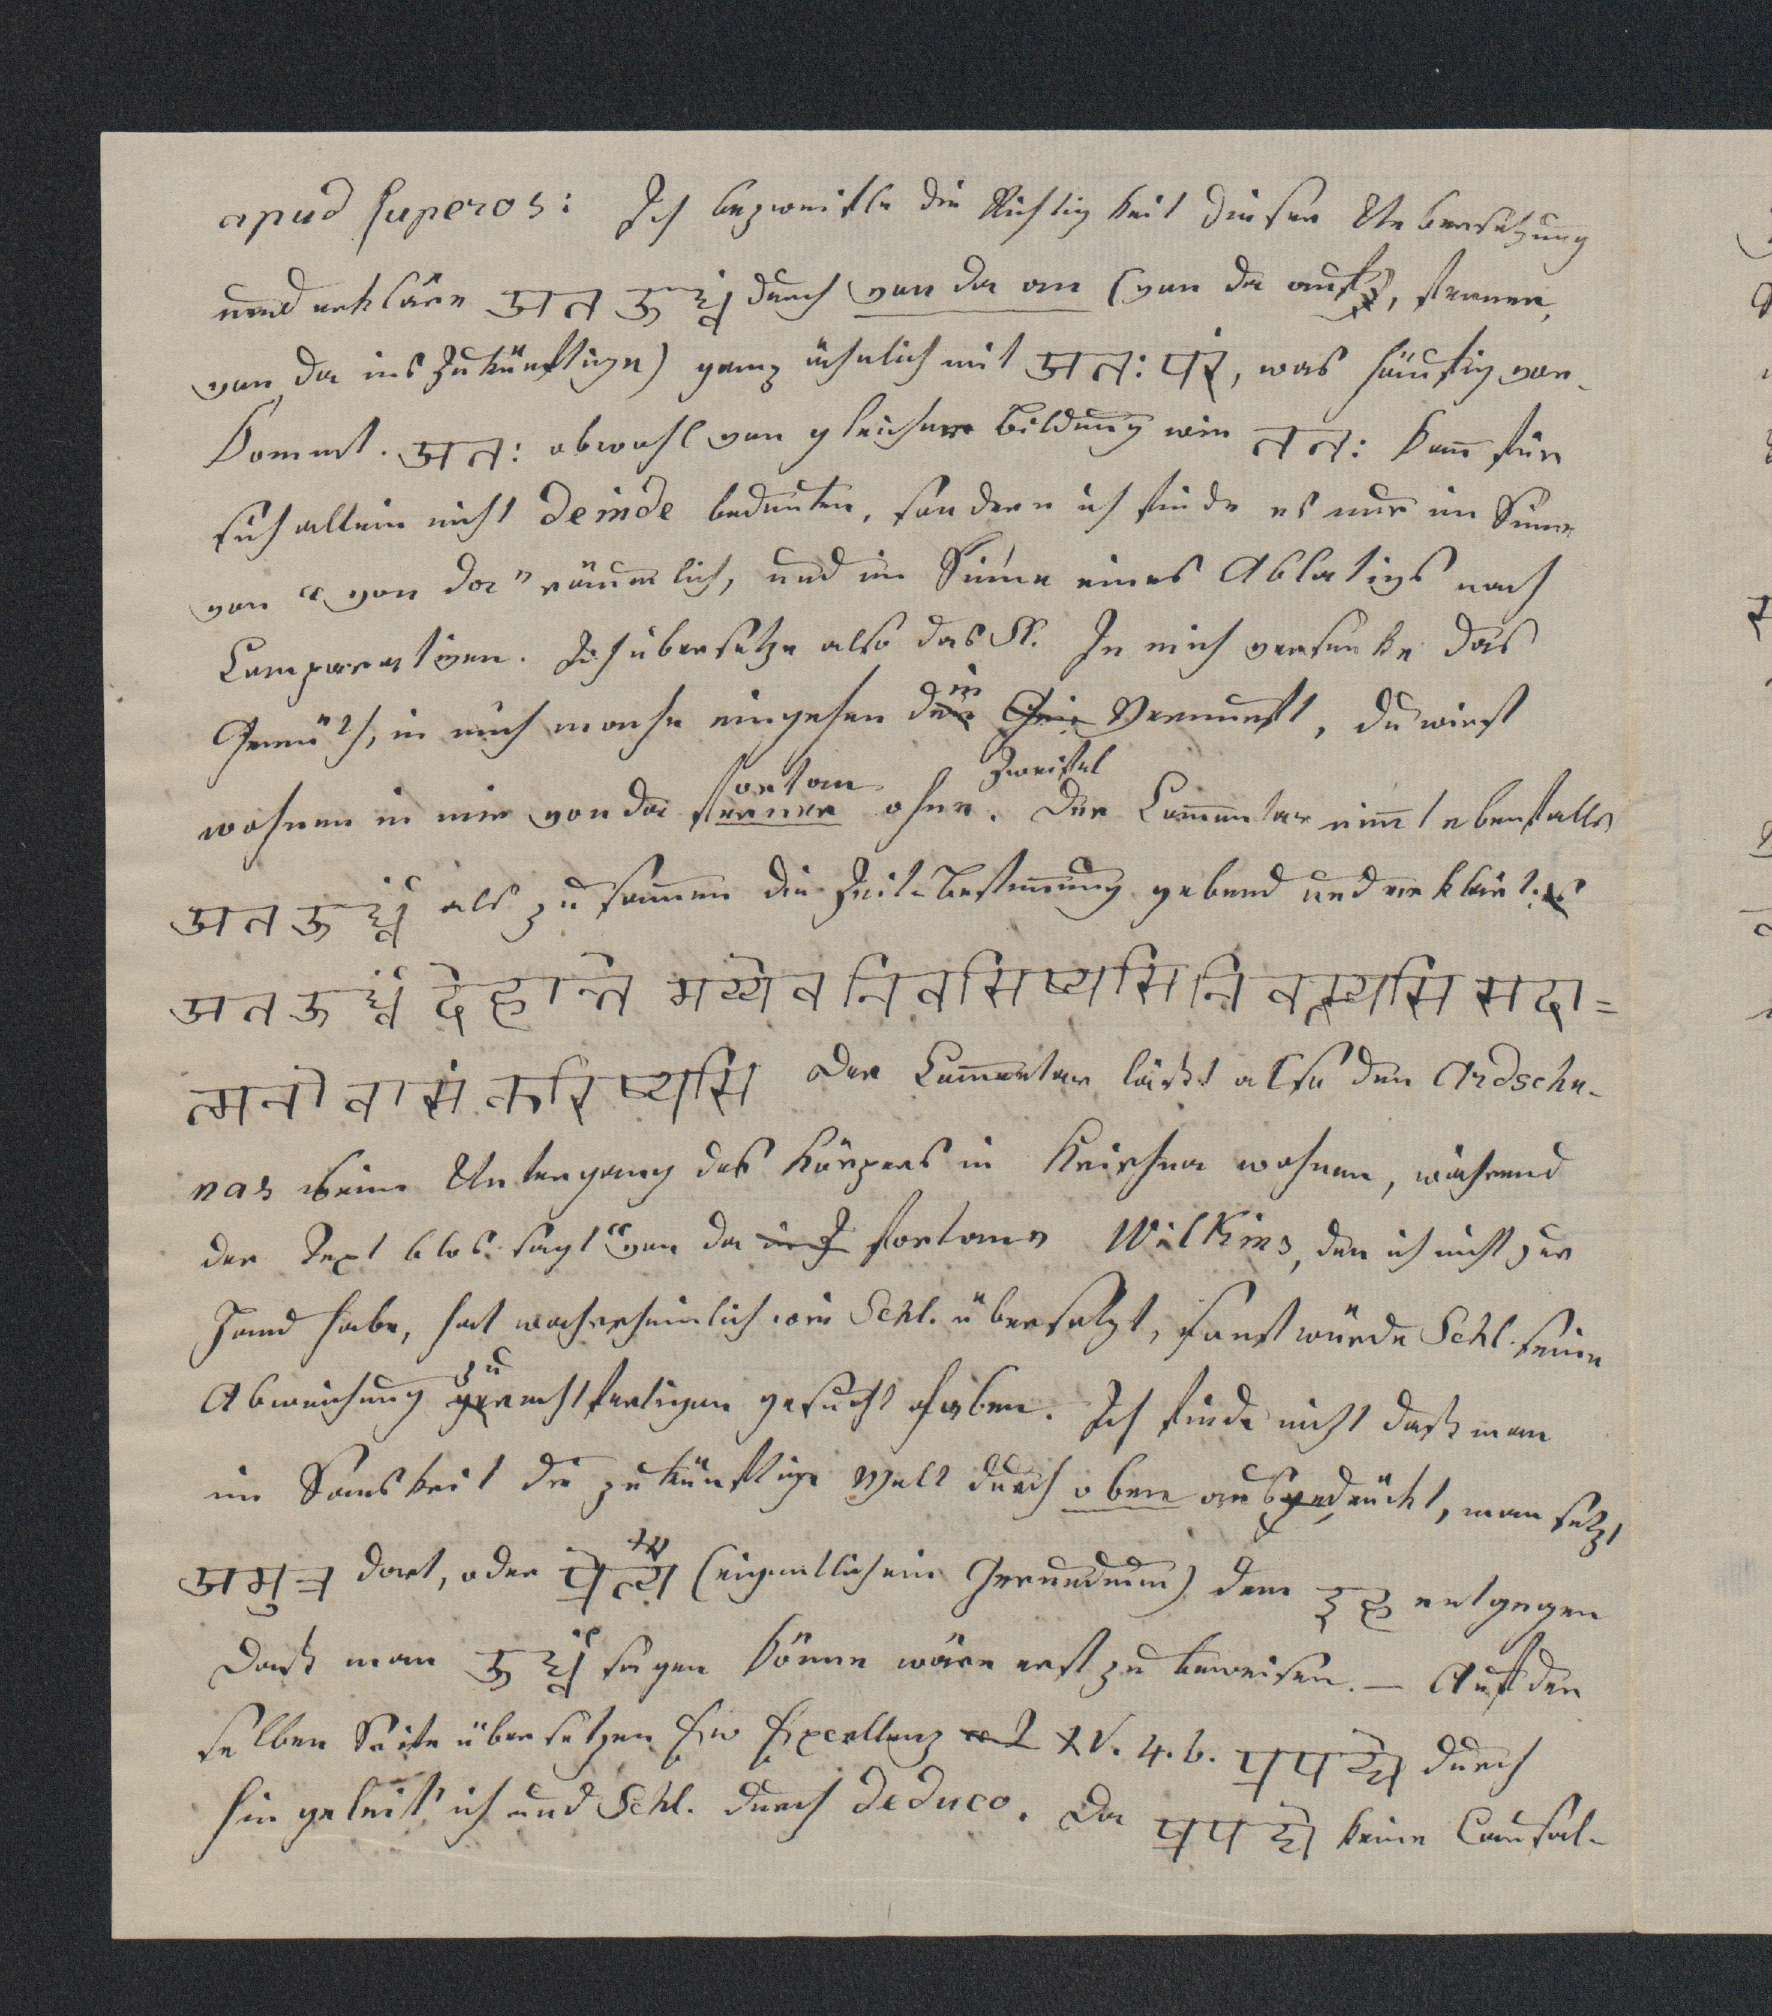 apud superos: Ich bezweifle die Richtigkeit dieser Uebersetzung
und erkläre अत ऊर्ध्वं durch von da an (von da aufs, ferner,
von da ins Zukünftige) ganz ähnlich mit अतः परं, was häufig vor-
kommt. अतः obwohl von gleicher Bildung wie ततः kann̄ für
sich allein nicht deinde bedeuten, sondern ich finde es nur im Sinne
von “von da” räumlich, und im Sinne eines Ablativs nach
Comparativen. Ich übersetze also das Sl. In mich versenke das
Gemüth, in mich mache eingehen dein Vernunft, du wirst
wohnen in mir von da fortan ohne Zweifel. Der Com̄entar nim̄t ebenfalls
अत ऊर्ध्वं als zusam̄men die Zeit-Bestim̄mung gebend und erklärt:
अत ऊर्ध्वं देहान्ते मय्येव निवसिष्यसि निवत्स्यसि सदा=
त्मनो वासं करिष्यसि Der Com̄entar läßt also den Ardschu-
nas beim Untergang des Körpers in Krischna wohnen, während
der Text blos sagt “von da fortan” Wilkins, den ich nicht zur
Hand habe, hat wahrscheinlich wie Schl. übersetzt, sonst würde Schl. seine
Abweichung zu rechtfertigen gesucht haben. Ich finde nicht daß man
im Sanskrit die zukünftige Welt durch oben ausdrückt, man setzt
अमुत्र dort, oder प्रेत्य (eigentlich ein Gerundium) dem इह entgegen
Daß man ऊर्ध्वं sagen könne wäre erst zu beweisen. — Auf der
selben Seite übersetzen Ew Excellenz XV. 4. b. प्रपद्ये durch
hin geleit' ich und Schl. durch deduco. Da प्रपद्ये keine Causal-